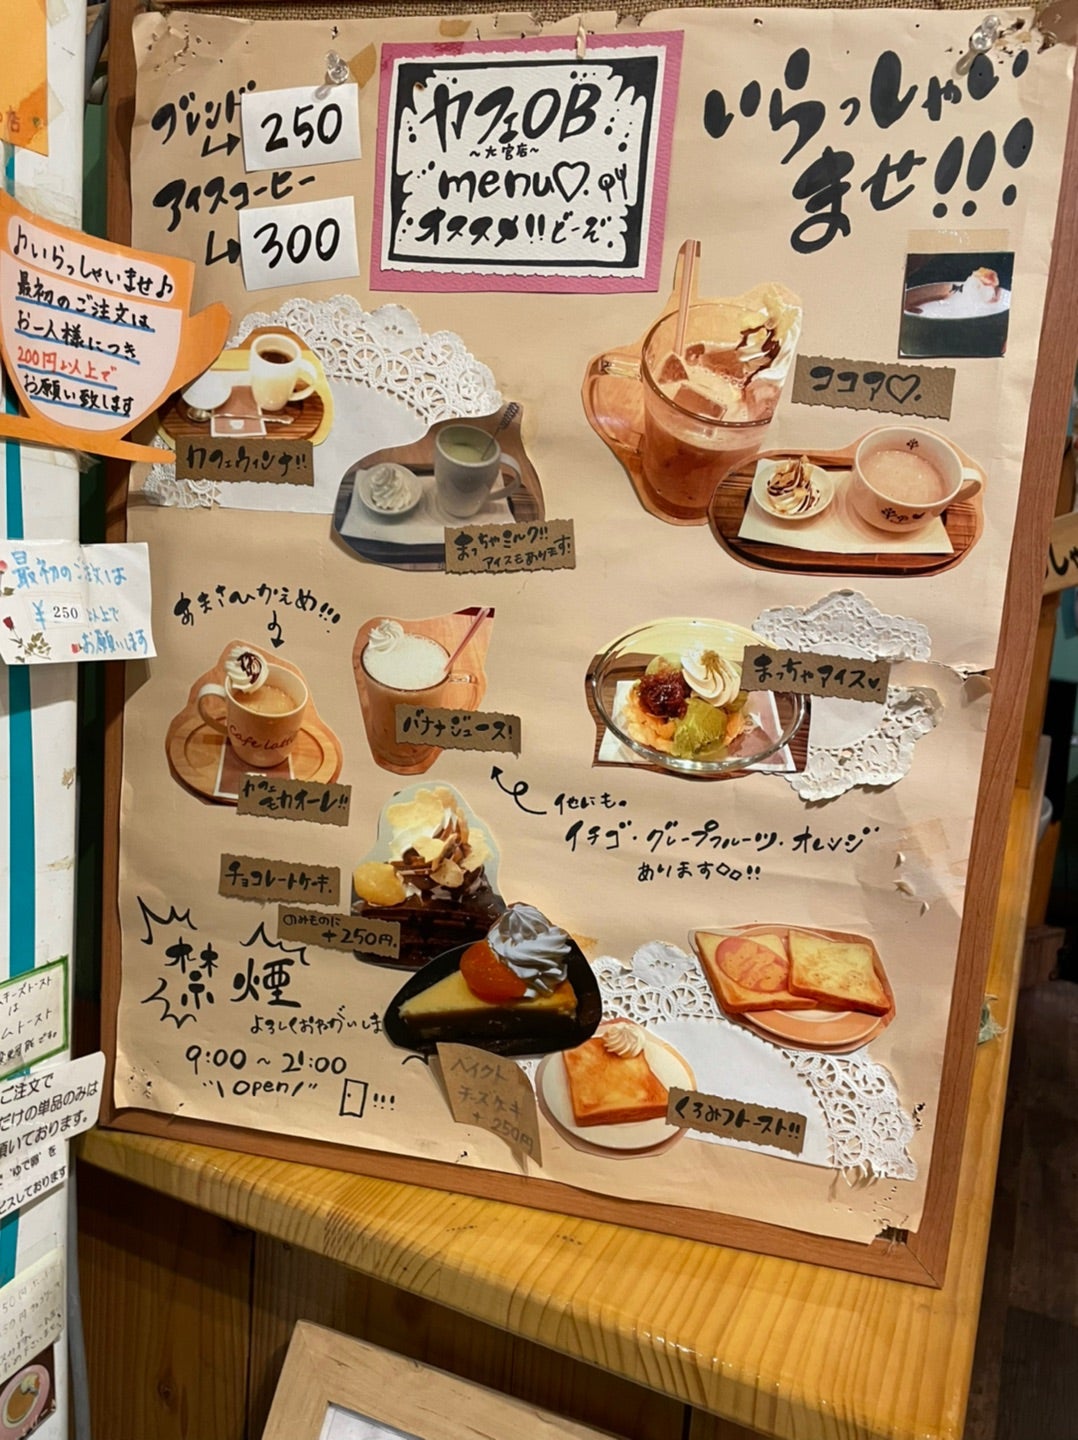 ブレンド
250
アイスコーヒー
300
カフェOB
～大宮店～
menu♡.
オススメ!!どーぞ
いらっしゃい
ませ!!!
♪いらっしゃいませ♪
最初のご注文は
お一人様につき
200円以上で
お願い致します
カフェウィンナ!!
まっちゃミルク!!
アイスもあります!
ココア♡.
最初のご注文は
¥250以上で
お願いします
あまさひかえめ!!!
Cafe Latte
カフェ
モカオーレ!!
バナナジュース!
まっちゃアイス♥.
他にも。
イチゴ・グレープフルーツ・オレンジ
あります!!
チョコレートケーキ.
のみものに
+250円.
禁煙
よろしくおねがいしま
9:00～21:00
open!
ベイクド
チーズケーキ
+250円
くるみフトースト!!
チーズトースト
は
ムトースト
ご注文で
だけの単品のみは
頂いております。
ゆで卵を
ビスしております